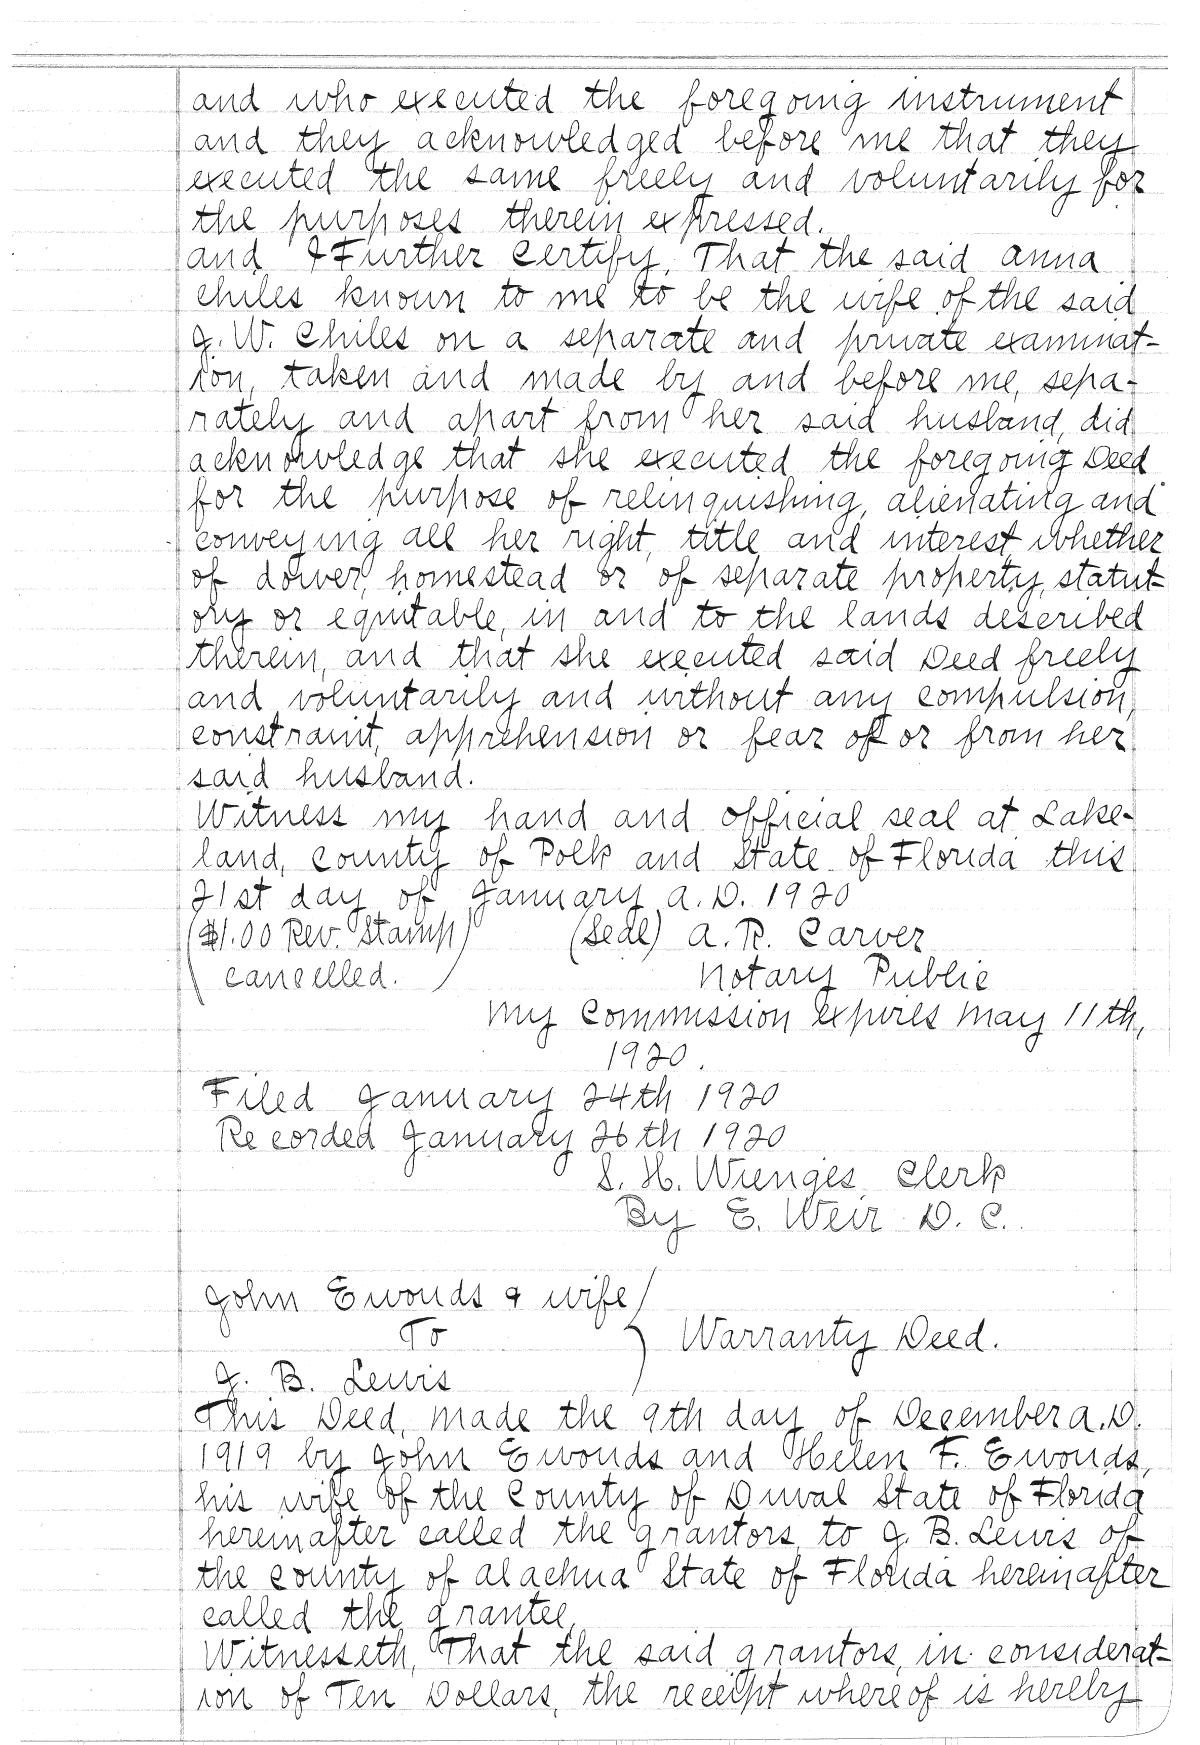 and who executed the foregoing instrument
and they acknowledged before me that they
executed the same freely and voluntarily for
the purposes therein expressed.
and I Further Certify, That the said Anna
Chiles known to me to be the wife of the said
J. W. Chiles on a separate and private examinat-
ion, taken and made by and before me, sepa-
rately and apart from her said husband, did
acknowledge that she executed the foregoing Deed
for the purpose of relinquishing, alienating and
conveying all her right, title and interest whether
of dower, homestead or of separate property, statut-
ory or equitable, in and to the lands described
therein, and that she executed said Deed freely
and voluntarily and without any compulsion,
constraint, apprehension or fear of or from her
said husband.
Witness my hand and official seal at Lake-
land, County of Polk and State of Florida this
21st day of January A.D. 1920
($1.00 Rev. Stamp) (Seal) A. R. Carver
cancelled. Notary Public
My Commission expires May 11th,
1920.
Filed January 24th 1920
Recorded January 26th 1920
S. H. Wienges, Clerk
By E. Weir D. C.
John Ewouds & wife
To Warranty Deed.
J. B. Lewis
This Deed, made the 9th day of December A.D.
1919 by John Ewouds and Helen F. Ewouds,
his wife of the County of Duval State of Florida
hereinafter called the grantors, to J. B. Lewis of
the County of Alachua State of Florida hereinafter
called the grantee,
Witnesseth, That the said grantors, in considerat-
ion of Ten Dollars, the receipt whereof is hereby